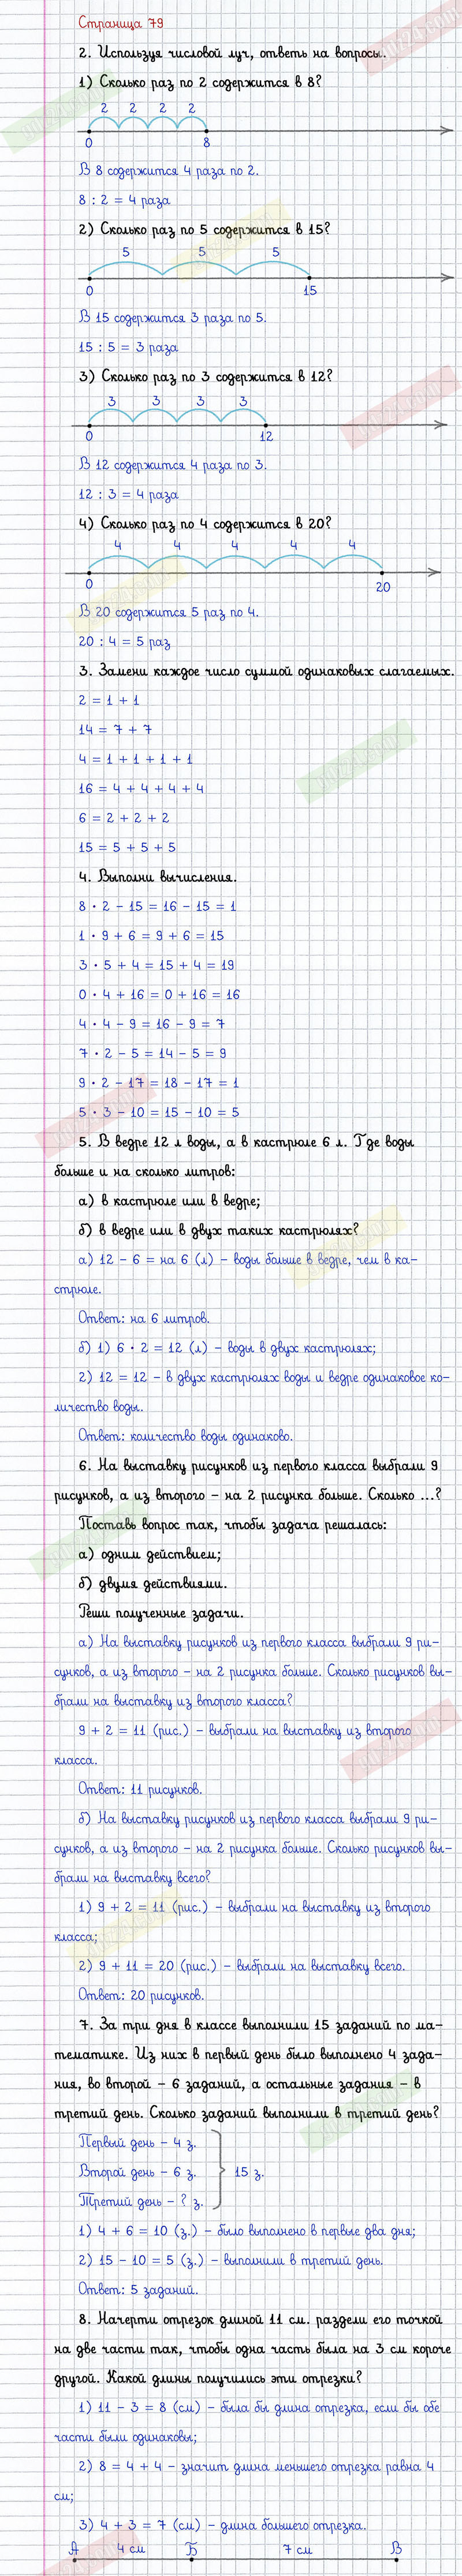 Страница 79
2. Используя числовой луч, ответь на вопросы.
1) Сколько раз по 2 содержится в 8?
2 2 2 2
0 8
В 8 содержится 4 раза по 2.
8 : 2 = 4 раза
2) Сколько раз по 5 содержится в 15?
5 5 5
0 15
В 15 содержится 3 раза по 5.
15 : 5 = 3 раза
3) Сколько раз по 3 содержится в 12?
3 3 3 3
0 12
В 12 содержится 4 раза по 3.
12 : 3 = 4 раза
4) Сколько раз по 4 содержится в 20?
4 4 4 4 4
0 20
В 20 содержится 5 раз по 4.
20 : 4 = 5 раз
3. Замени каждое число суммой одинаковых слагаемых.
2 = 1 + 1
14 = 7 + 7
4 = 1 + 1 + 1 + 1
16 = 4 + 4 + 4 + 4
6 = 2 + 2 + 2
15 = 5 + 5 + 5
4. Выполни вычисления.
8 · 2 – 15 = 16 – 15 = 1
1 · 9 + 6 = 9 + 6 = 15
3 · 5 + 4 = 15 + 4 = 19
0 · 4 + 16 = 0 + 16 = 16
4 · 4 – 9 = 16 – 9 = 7
7 · 2 – 5 = 14 – 5 = 9
9 · 2 – 17 = 18 – 17 = 1
5 · 3 – 10 = 15 – 10 = 5
5. В ведре 12 л воды, а в кастрюле 6 л. Где воды
больше и на сколько литров:
а) в кастрюле или в ведре;
б) в ведре или в двух таких кастрюлях?
а) 12 – 6 = на 6 (л) – воды больше в ведре, чем в ка-
стрюле.
Ответ: на 6 литров.
б) 1) 6 · 2 = 12 (л) – воды в двух кастрюлях;
2) 12 = 12 – в двух кастрюлях воды и ведре одинаковое ко-
личество воды.
Ответ: количество воды одинаково.
6. На выставку рисунков из первого класса выбрали 9
рисунков, а из второго – на 2 рисунка больше. Сколько ...?
Поставь вопрос так, чтобы задача решалась:
а) одним действием;
б) двумя действиями.
Реши полученные задачи.
а) На выставку рисунков из первого класса выбрали 9 ри-
сунков, а из второго – на 2 рисунка больше. Сколько рисунков вы-
брали на выставку из второго класса?
9 + 2 = 11 (рис.) – выбрали на выставку из второго
класса.
Ответ: 11 рисунков.
б) На выставку рисунков из первого класса выбрали 9 ри-
сунков, а из второго – на 2 рисунка больше. Сколько рисунков вы-
брали на выставку всего?
1) 9 + 2 = 11 (рис.) – выбрали на выставку из второго
класса;
2) 9 + 11 = 20 (рис.) – выбрали на выставку всего.
Ответ: 20 рисунков.
7. За три дня в классе выполнили 15 заданий по ма-
тематике. Из них в первый день было выполнено 4 зада-
ния, во второй – 6 заданий, а остальные задания – в
третий день. Сколько заданий выполнили в третий день?
Первый день – 4 з.
Второй день – 6 з. 15 з.
Третий день – ? з.
1) 4 + 6 = 10 (з.) – было выполнено в первые два дня;
2) 15 – 10 = 5 (з.) – выполнили в третий день.
Ответ: 5 заданий.
8. Начерти отрезок длиной 11 см. раздели его точкой
на две части так, чтобы одна часть была на 3 см короче
другой. Какой длины получились эти отрезки?
1) 11 – 3 = 8 (см) – была бы длина отрезка, если бы обе
части были одинаковы;
2) 8 = 4 + 4 – значит длина меньшего отрезка равна 4
см;
3) 4 + 3 = 7 (см) – длина большего отрезка.
А 4 см Б 7 см В